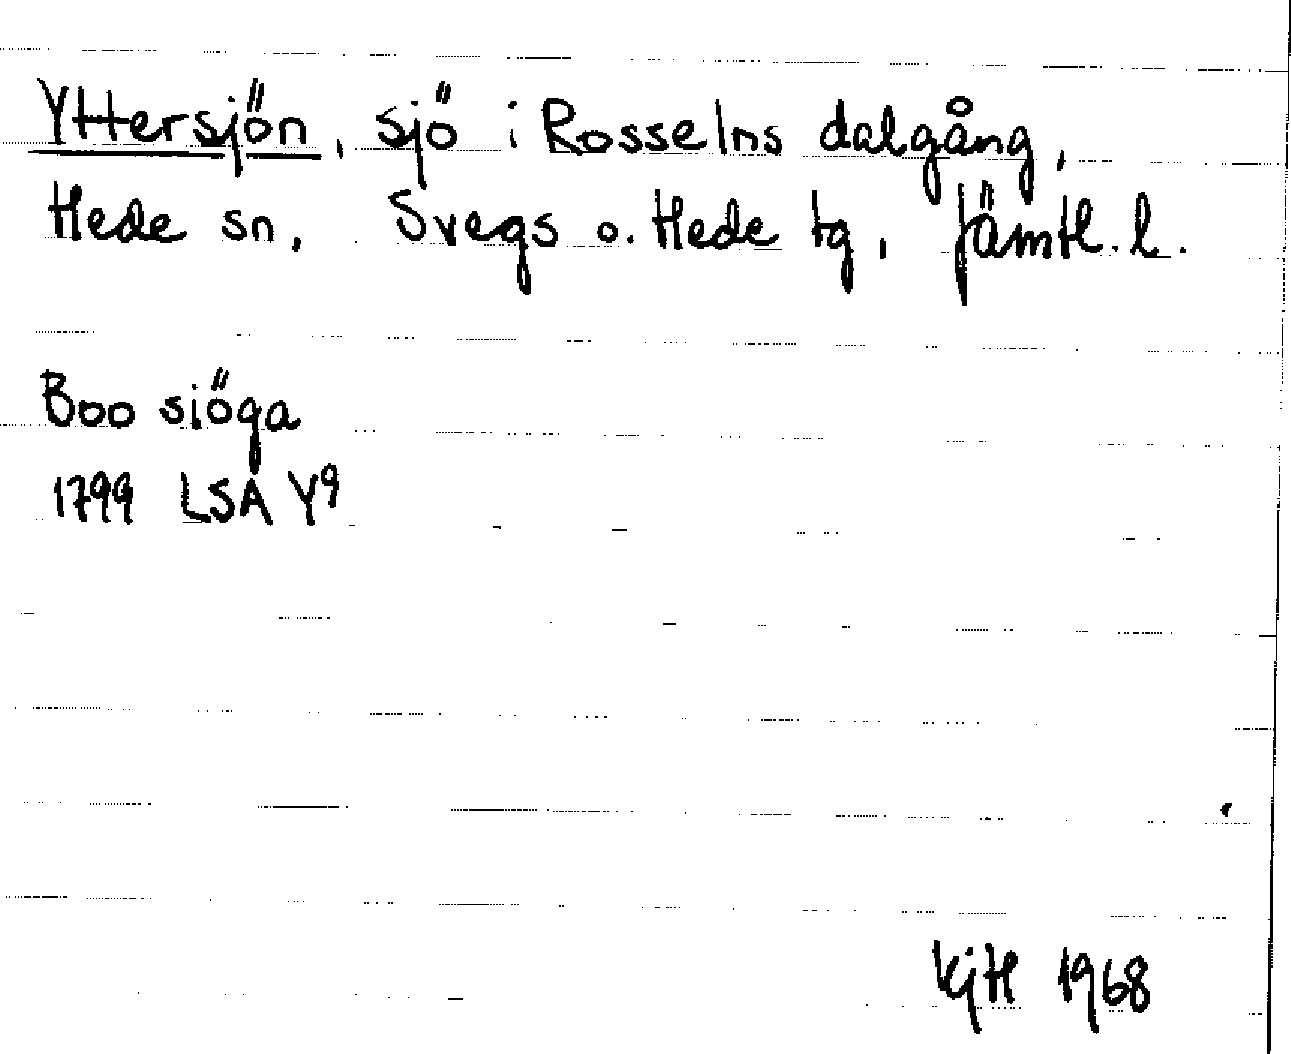 Yttersjön, sjö i Rosselns dalgång,
Hede sn, Svegs o. Hede tg, Jämtl. l.
Boo siöga
1799 LSA Y9
KjH 1968